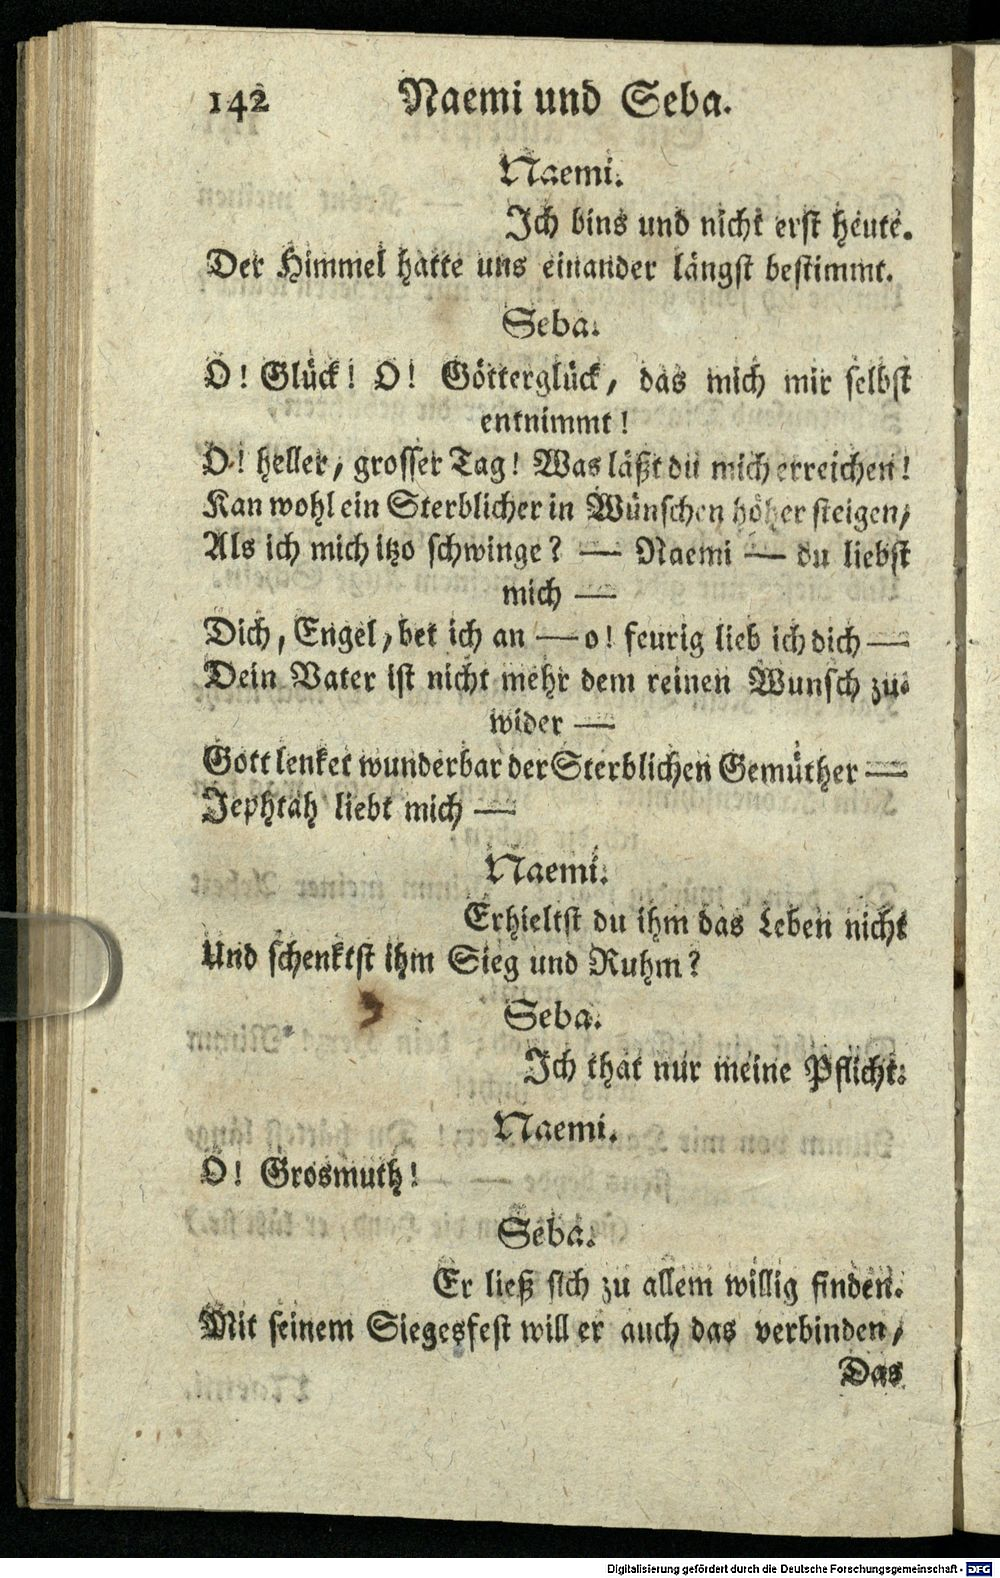 142 Naemi und Seba.
Naemi.
Ich bins und nicht erst heute.
Der Himmel hatte uns einander längst bestimmt.
Seba.
O! Glück! O! Götterglück, das mich mir selbst
entnimmt!
O! heller, grosser Tag! Was läßt du mich erreichen!
Kan wohl ein Sterblicher in Wünschen höher steigen,
Als ich mich itzo schwinge? — Naemi — du liebst
mich —
Dich, Engel, bet ich an — o! feurig lieb ich dich —
Dein Vater ist nicht mehr dem reinen Wunsch zu-
wider —
Gott lenket wunderbar der Sterblichen Gemüther —
Jephtah liebt mich —
Naemi.
Erhieltst du ihm das Leben nicht
Und schenktst ihm Sieg und Ruhm?
Seba.
Ich that nur meine Pflicht.
Naemi.
O! Grosmuth!
Seba.
Er ließ sich zu allem willig finden.
Mit seinem Siegesfest will er auch das verbinden,
Das
Digitalisierung gefördert durch die Deutsche Forschungsgemeinschaft - DFG